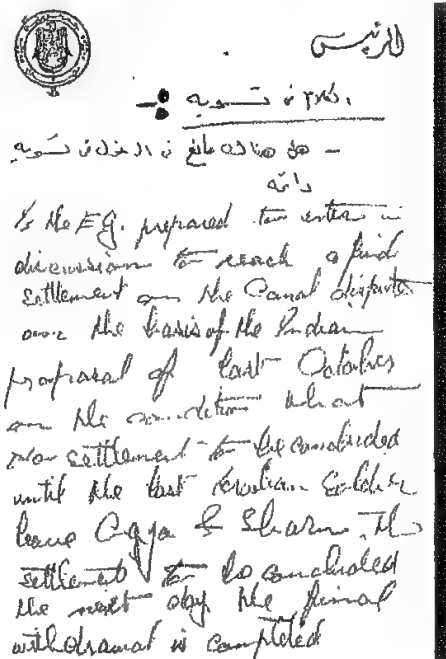 الرئيس
الكلام فى تسوية
- هل هناك مانع فى الدخول فى تسوية
دائمة
Is the E.G. prepared to enter in
discussion to reach a final
settlement on the Canal dispute
over the basis of the Indian
proposal of last October
on the condition that
no settlement to be concluded
until the last Israelian Soldier
leave Gaza & Sharm. The
settlement to be concluded
the next day the final
withdrawal is completed